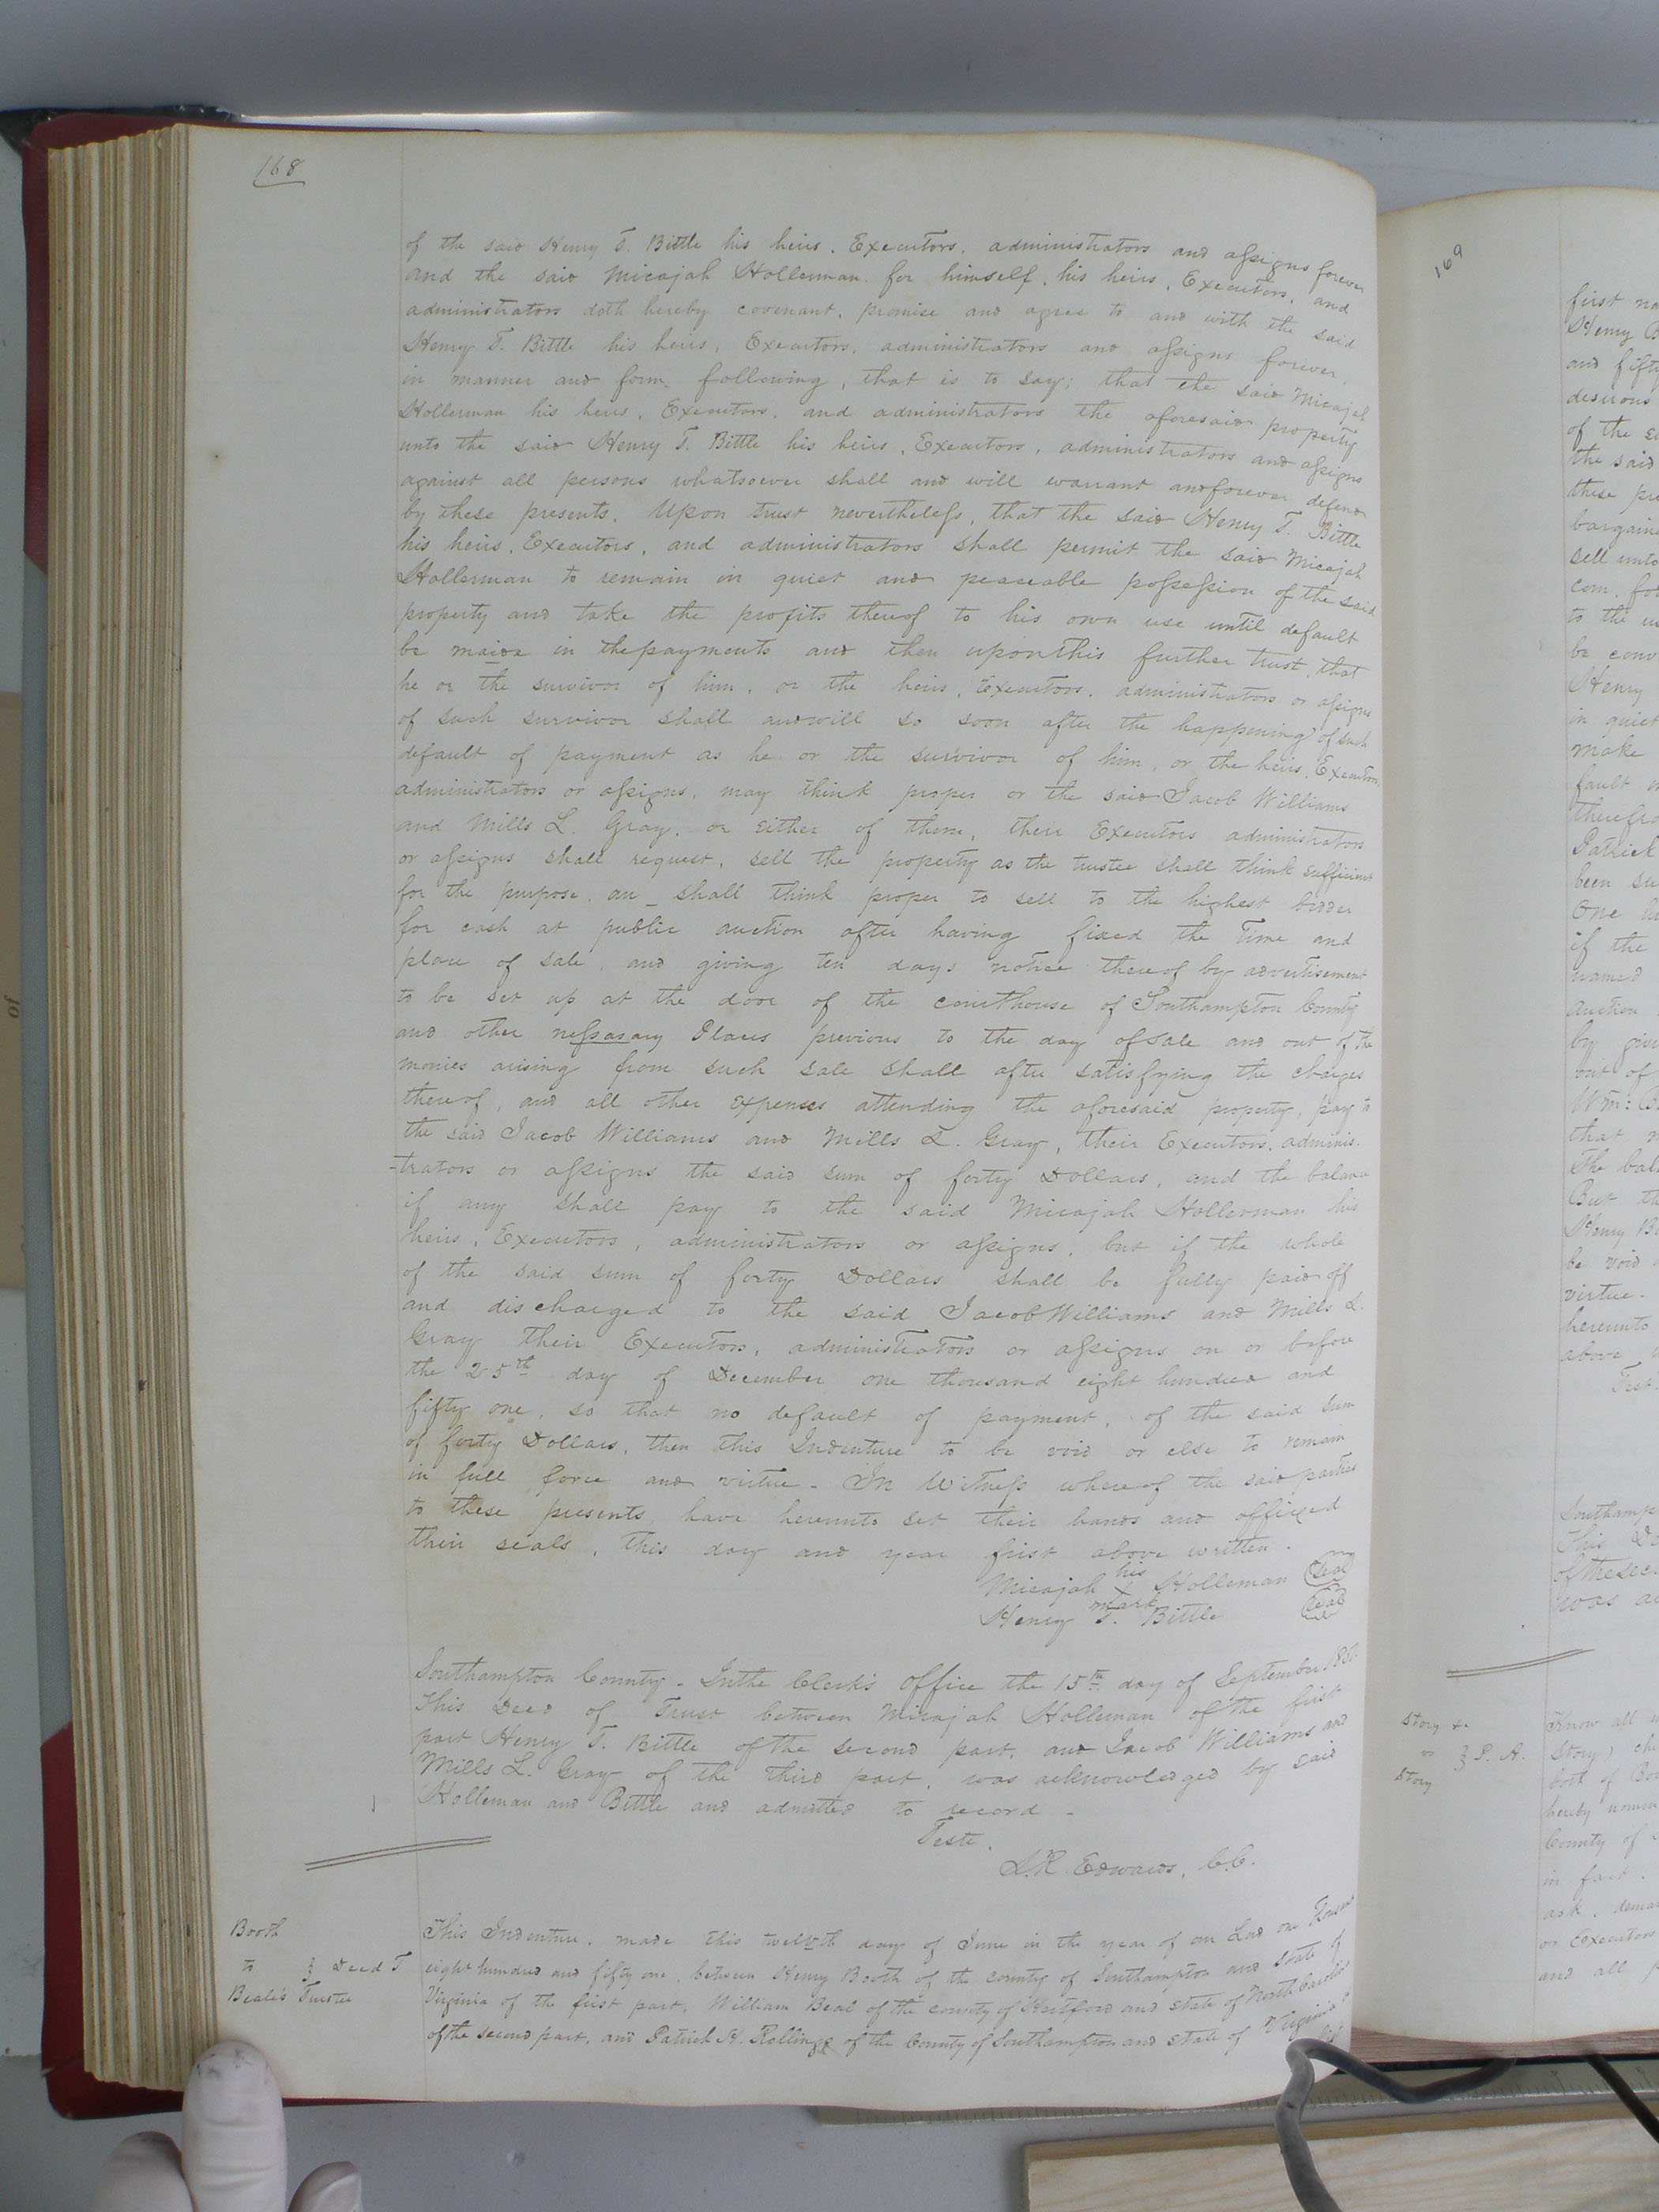 168
of the said Henry T. Bittle his heirs. Executors, administrators and assigns forever
and the said Micajah Hollerman for himself, his heirs, Executors, and
administrators doth hereby covenant, promise and agree to and with the said
Henry T. Bittle his heirs, Executors, administrators and assigns forever,
in manner and form following, that is to say; that the said Micajah
Hollerman his heirs, Executors, and administrators the aforesaid property
unto the said Henry T. Bittle his heirs, Executors, administrators and assigns
against all persons whatsoever shall and will warrant and forever defend
by these presents. Upon trust nevertheless, that the said Henry T. Bittle
his heirs, Executors, and administrators shall permit the said Micajah
Hollerman to remain in quiet and peaceable possession of the said
property and take the profits thereof to his own use until default
be maide in the payments and then upon this further trust, that
he or the survivor of him, or the heirs, Executors, administrators or assigns
of such survivor shall and will so soon after the happening of such
default of payment as he or the survivor of him, or the heirs, Executors
administrators or assigns, may think proper or the said Jacob Williams
and Mills L. Gray, or either of them, their Executors administrators
or assigns shall request, sell the property as the trustee shall think sufficient
for the purpose, an _ shall think proper to sell to the highest bidder
for cash at public auction after having fixed the time and
place of sale, and giving ten days notice thereof by advertisement
to be set up at the door of the courthouse of Southampton County
and other nessarary Places previous to the day of sale and out of the
monies arising from such sale shall after satisfying the charges
thereof, and all other expenses attending the aforesaid property, pay to
the said Jacob Williams and Mills L. Gray, their Executors, adminis-
-trators or assigns the said sum of forty Dollars, and the balance
if any shall pay to the said Micajah Hollerman his
heirs, Executors, administrators or assigns, but if the whole
of the said sum of forty Dollars shall be fully paid off
and discharged to the said Jacob Williams and Mills L.
Gray their Executors, administrators or assigns on or before
the 25th day of December one thousand eight hundred and
fifty one, so that no default of payment, of the said sum
of forty Dollars, then this Indenture to be void or else to remain
in full force and virtue - In Witness whereof the said parties
to these presents have hereunto set their hands and affixed
their seals, this day and year first above written.
his
Micajah X Holleman Seal
mark
Henry T. Bittle Seal
Southampton County - In the Clerk's Office the 15th day of September
This Deed of Trust between Micajah Holleman of the first
part Henry T. Bittle of the second part, and Jacob Williams and
Mills L. Gray of the third part, was acknowledged by said
Holleman and Bittle and admitted to record -
Teste.
L.R. Edwards, C.C.
Booth
to } Deed T
Beale's Trustee
This Indenture, made this twelvth day of June in the year of our Lord one Thousand
eight hundred and fifty one, between Henry Booth of the county of Southampton and State of
Virginia of the first part, William Beal of the county of Hertford and state of North Carolina
of the second part, and Patrick H. Rollings of the County of Southampton and State of Virginia
169
first
Henry
and fifty
desirous
of the
the said
these
sell unto
com.
to the
be
Henry
in quiet
make
fault
Patrick
been
One
if the
named
auction
by
out of
Wm:
that
The
But the
Henry
be void
virtue -
hereunto
above
Test.
This
was
Story &c
or } P. A.
Story
Know all
Story
hereby
County of
in fact.
ask,
or Executors
and all